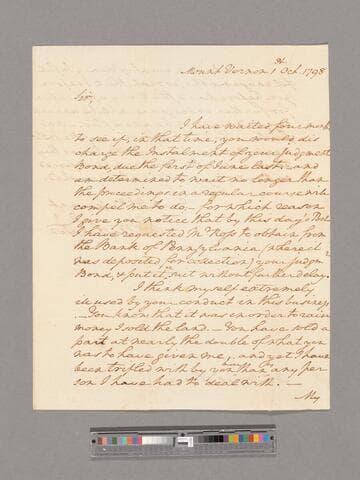 Mount Vernon 1st Oct. 1798
Sir,
I have waited four months
to see if, in that time, you would dis
charge the Instalment of your Judgment
Bond, due the first of June last; and
am determined to wait no longer than
the proceedings in a regular course will
compel me to do, - for which reason
I give you notice that by this day's Post
I have requested Mr Ross to obtain from
the Bank of Pennsylvania (where it
was deposited for collection) your Judgmt
Bond, & put it in suit without further delay.
I think myself extremely
ill used by your conduct in this business.
- You know that it was in order to raise
money I sold the land. - You have sold a
part at nearly the double of what you
was to have given me, and yet I have
been trifled with by you more than any per
son I have had to deal with. -
My